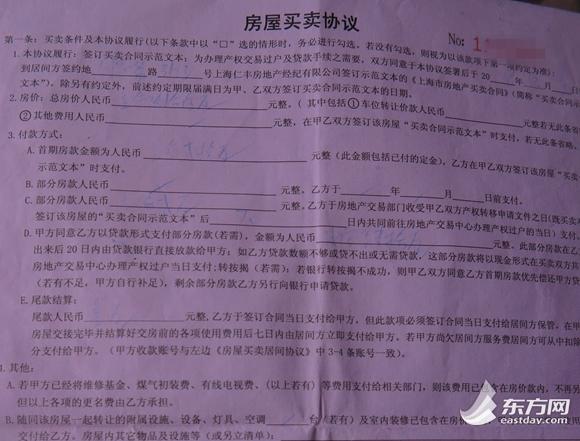 房屋买卖协议
No: 1
第一条：买卖条件及本协议履行(以下条款中以“□”选的情形时，务必进行勾选，若没有勾选，则视为以该款项下第一项约定为准)：
1. 本协议履行：签订买卖合同示范文本：为办理产权交易过户及贷款手续之需要，双方同意于本协议签署后于 20 年 月
到居间方签约地 路 号上海仁丰房地产经纪有限公司签订示范文本的《上海市房地产买卖合同》（简称“买卖合同示
文本”）。除另有约定外，前述约定期限届满日为甲、乙双方签订买卖合同示范文本的日期。
2. 房价：总房价人民币 元整，（其中包括①车位转让价款人民币 元整若无此备
②其他费用人民币 元整，在甲乙双方签订该房屋“买卖合同示范文本”时支付，若无此备省略、
3. 付款方式：
A. 首期房款金额为人民币 元整（此金额包括已付的定金），乙方在甲乙双方签订该房屋“买卖
示范文本”时支付。
B. 部分房款人民币 元整，乙方于 年 月 日前支付。
C. 部分房款人民币 元整，乙方于房地产交易部门收受甲乙双方产权转移申请文件之日(既买卖
签订该房屋的“买卖合同示范文本”后 日内共同前往房地产交易中心办理产权过户的当日）支付。
D. 甲方同意乙方以贷款形式支付部分房款(若需)，金额为人民币 元整，此部分房款在乙
出来后20日内由贷款银行直接放款给甲方；如乙方贷款数额不够或贷不出或无需贷款，这部分房款将以现金形式在买卖双方共
房地产交易中心办理产权过户当日支付;转按揭（若需)：若银行转按揭不成功，则甲乙双方同意乙方首期房款优先偿还甲方贷
（若有不足，甲方自行补足），剩余部分房款乙方另行向银行申请贷款。
E. 尾款结算：
尾款人民币 元整，乙方于签订合同当日支付给甲方，但此款项必须签订合同当日支付给居间方保管，在甲
房屋交接完毕并结算好交房前的各项使用费用后七日内由居间方立即支付给甲方。若甲方尚欠居间方服务费居间方可从中扣除
分支付给甲方。（甲方收款账号与左边《房屋买卖居间协议》中 3-4 条账号一致）。
其他：
A. 若甲方已经将维修基金、煤气初装费、有线电视费、（以上若有）等费用支付给相关部门，则该费用已包含在房价款内，不再另
但以上各项的更名费由乙方承担。
B. 随同该房屋一起转让的附属设施、设备、灯具、空调 台（若有）及室内装修已包含在房价
交付给乙方。房屋内其它物品及设施等（或另立清单）：
东方网
eastday.com